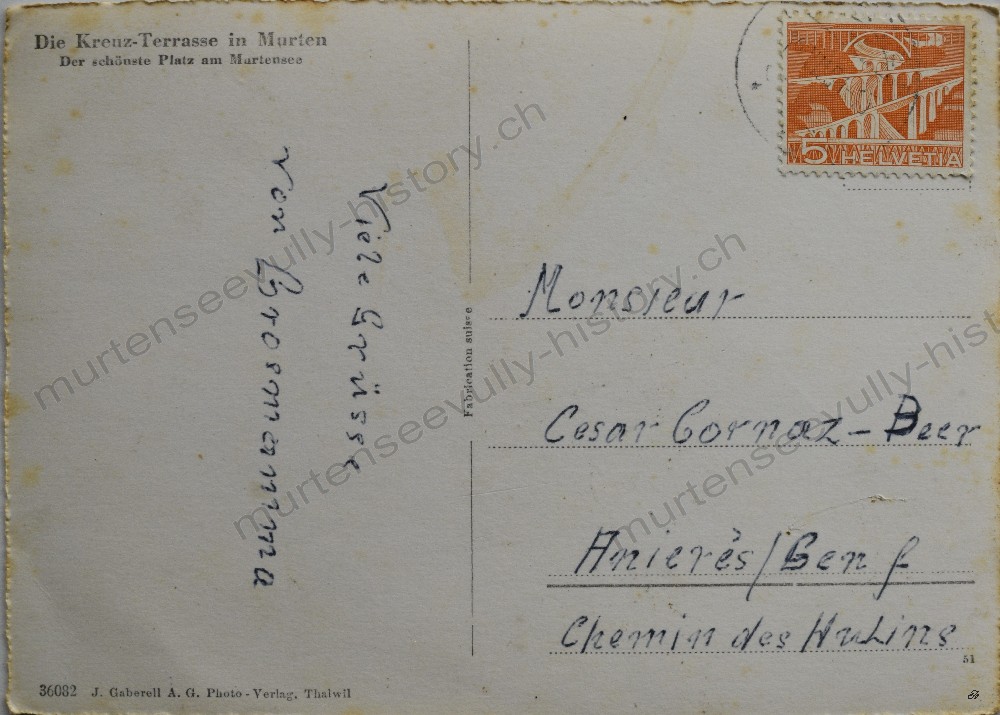 Die Kreuz-Terrasse in Murten
Der schönste Platz am Murtensee
5 HELVETIA
Viele Grüsse
von Grosmamma
Fabrication suisse
Monsieur
Cesar Cornaz - Beer
Anierès/Genf
Chemin des Hutins
51
36082 J. Gaberell A. G. Photo - Verlag, Thalwil
murtenseevully-history.ch
murtenseevully-history.ch
murtenseevully-history.ch